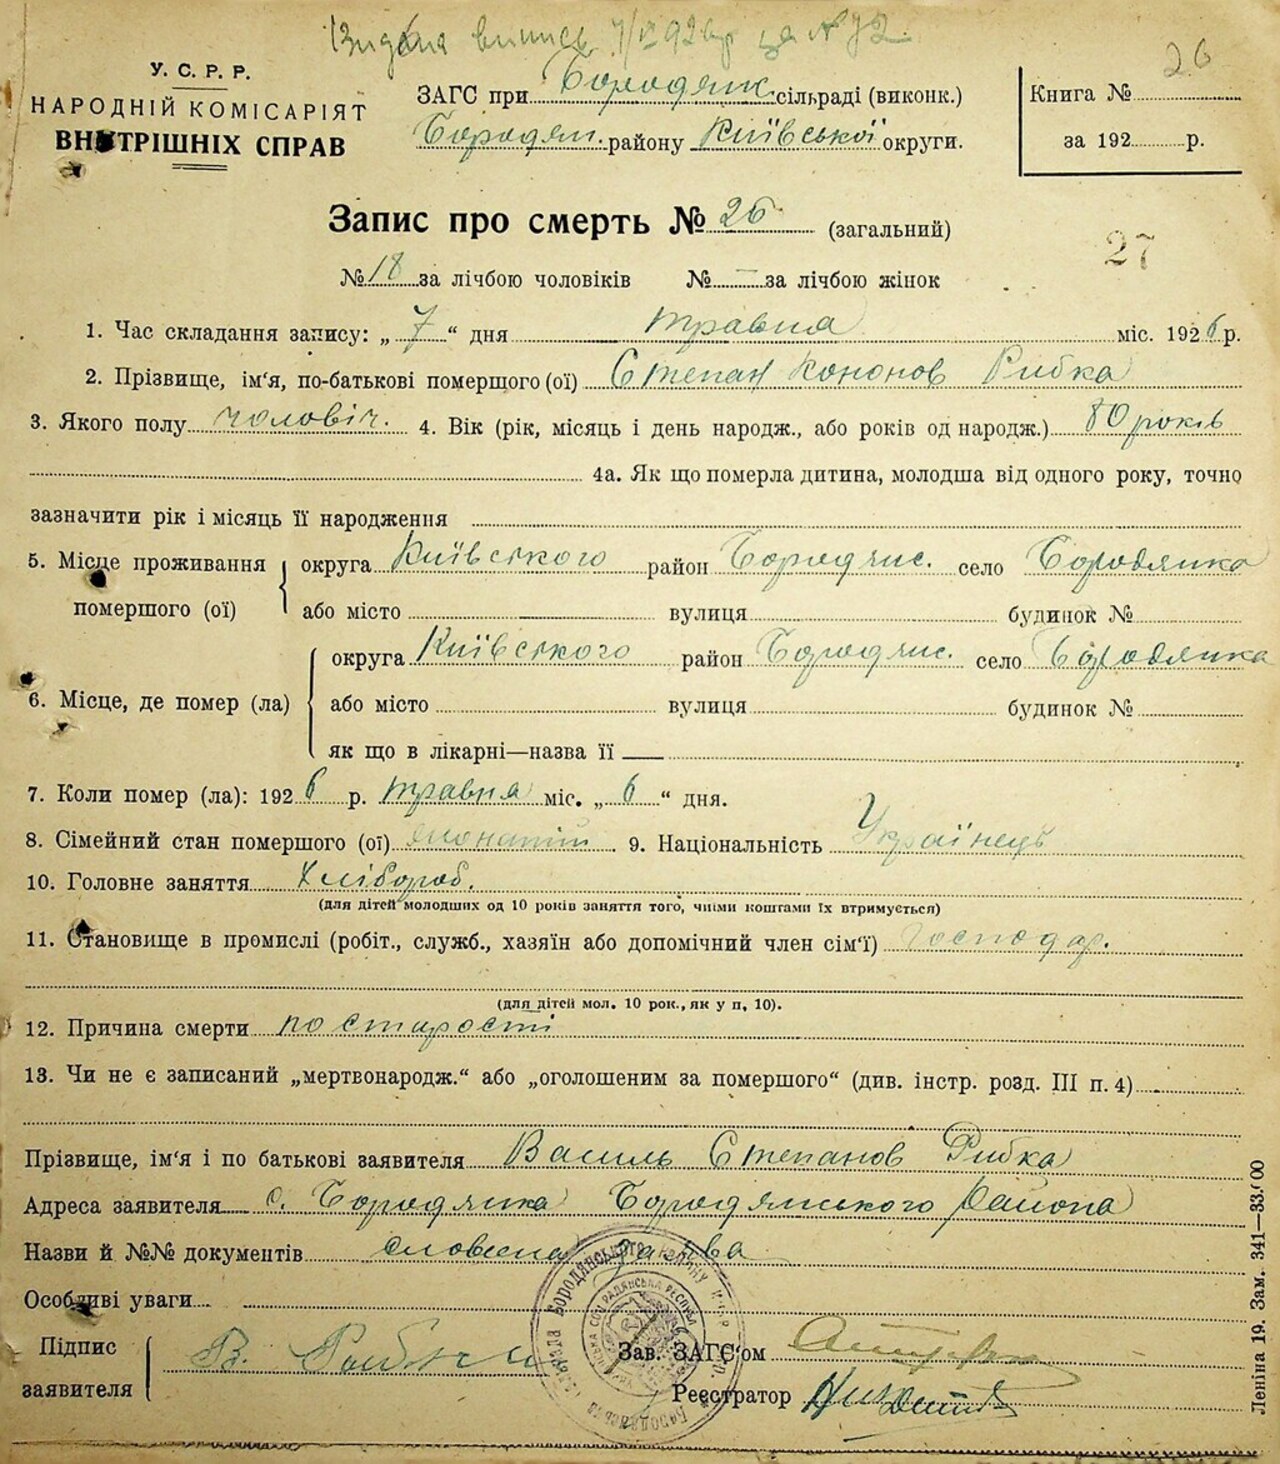 Видана випись 7/VI 92 р за № 92
26
У. С. Р. Р.
НАРОДНІЙ КОМІСАРІЯТ
ВНУТРІШНІХ СПРАВ
ЗАГС при Бородянк. сільраді (виконк.)
Бородян. району Київської округи.
Книга №
за 192 р.
Запис про смерть № 26 (загальний)
27
№ 18 за лічбою чоловіків № — за лічбою жінок
1. Час складання запису: „ 7 “ дня травня міс. 1926 р.
2. Прізвище, ім‘я, по-батькові померщого (ої) Степан Кононов Рибка
3. Якого полу чоловіч. 4. Вік (рік, місяць і день народж., або років од народж.) 80 років
4а. Як що померла дитина, молодша від одного року, точно
зазначити рік і місяць її народження
5. Місце проживання помершого (ої) округа Київського район Бородянс. село Бородянка
або місто вулиця будинок №
6. Місце, де помер (ла) округа Київського район Бородянс. село Бородянка
або місто вулиця будинок №
як що в лікарні—назва її —
7. Коли помер (ла): 1926 р. травня міс. „ 6 “ дня.
8. Сімейний стан помершого (ої) жонатий 9. Національність Українець
10. Головне заняття Хлібороб.
(для дітей молодших од 10 років заняття того, чиїми коштами їх втримується)
11. Становище в промислі (робіт., служб., хазяїн або допомічний член сім‘ї) Господар.
(для дітей мол. 10 рок., як у п. 10).
12. Причина смерти по старості
13. Чи не є записаний „мертвонародж.“ або „оголошеним за помершого“ (див. інстр. розд. III п. 4)
Прізвище, ім‘я і по батькові заявителя Василь Степанов Рибка
Адреса заявителя с. Бородянка Бородянського Района
Назви й №№ документів словесна заява
Особливі уваги
Підпис заявителя В. Рибка
Зав. ЗАГС‘ом
Реєстратор
Леніна 19. Зам. 341—33.000